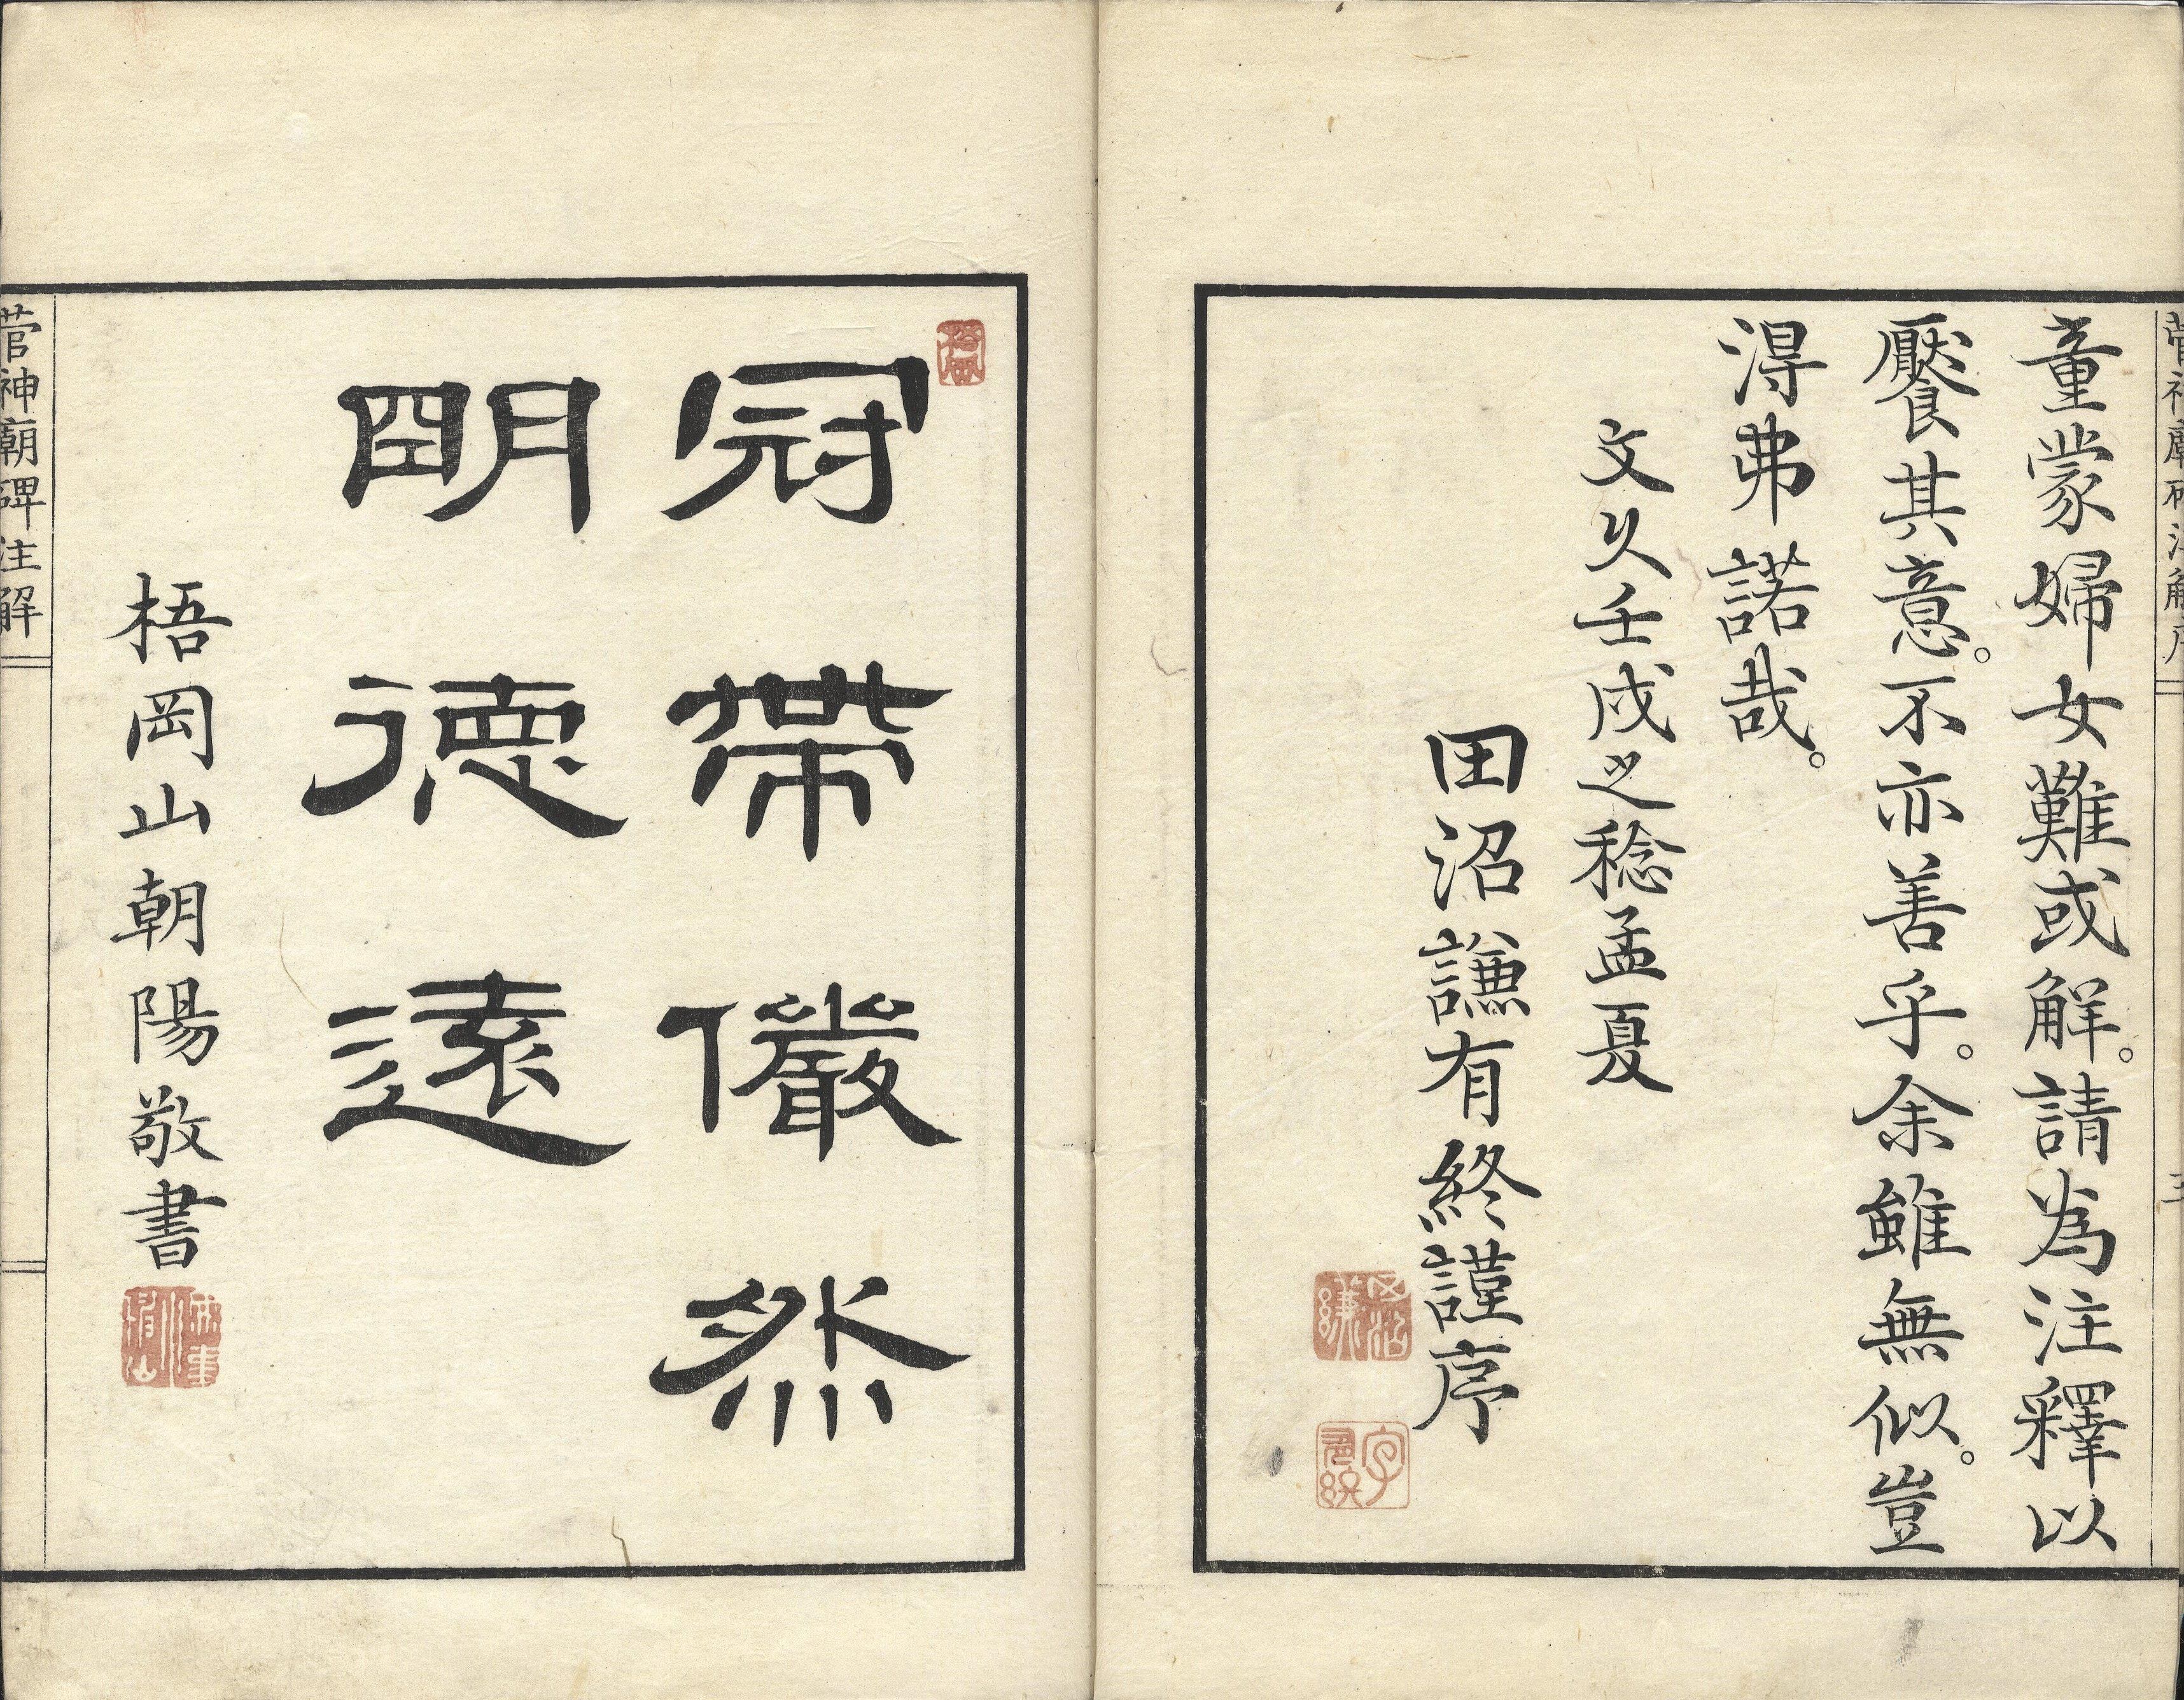 童蒙婦女難或解。請為注釋以
饜其意。不亦善乎。余雖無似。豈
淂弗諾哉。
文久壬戌之稔孟夏
田沼謙有終謹序
字有終
冠帶儼然
明德遠
梧岡山朝陽敬書
菅神廟碑注解